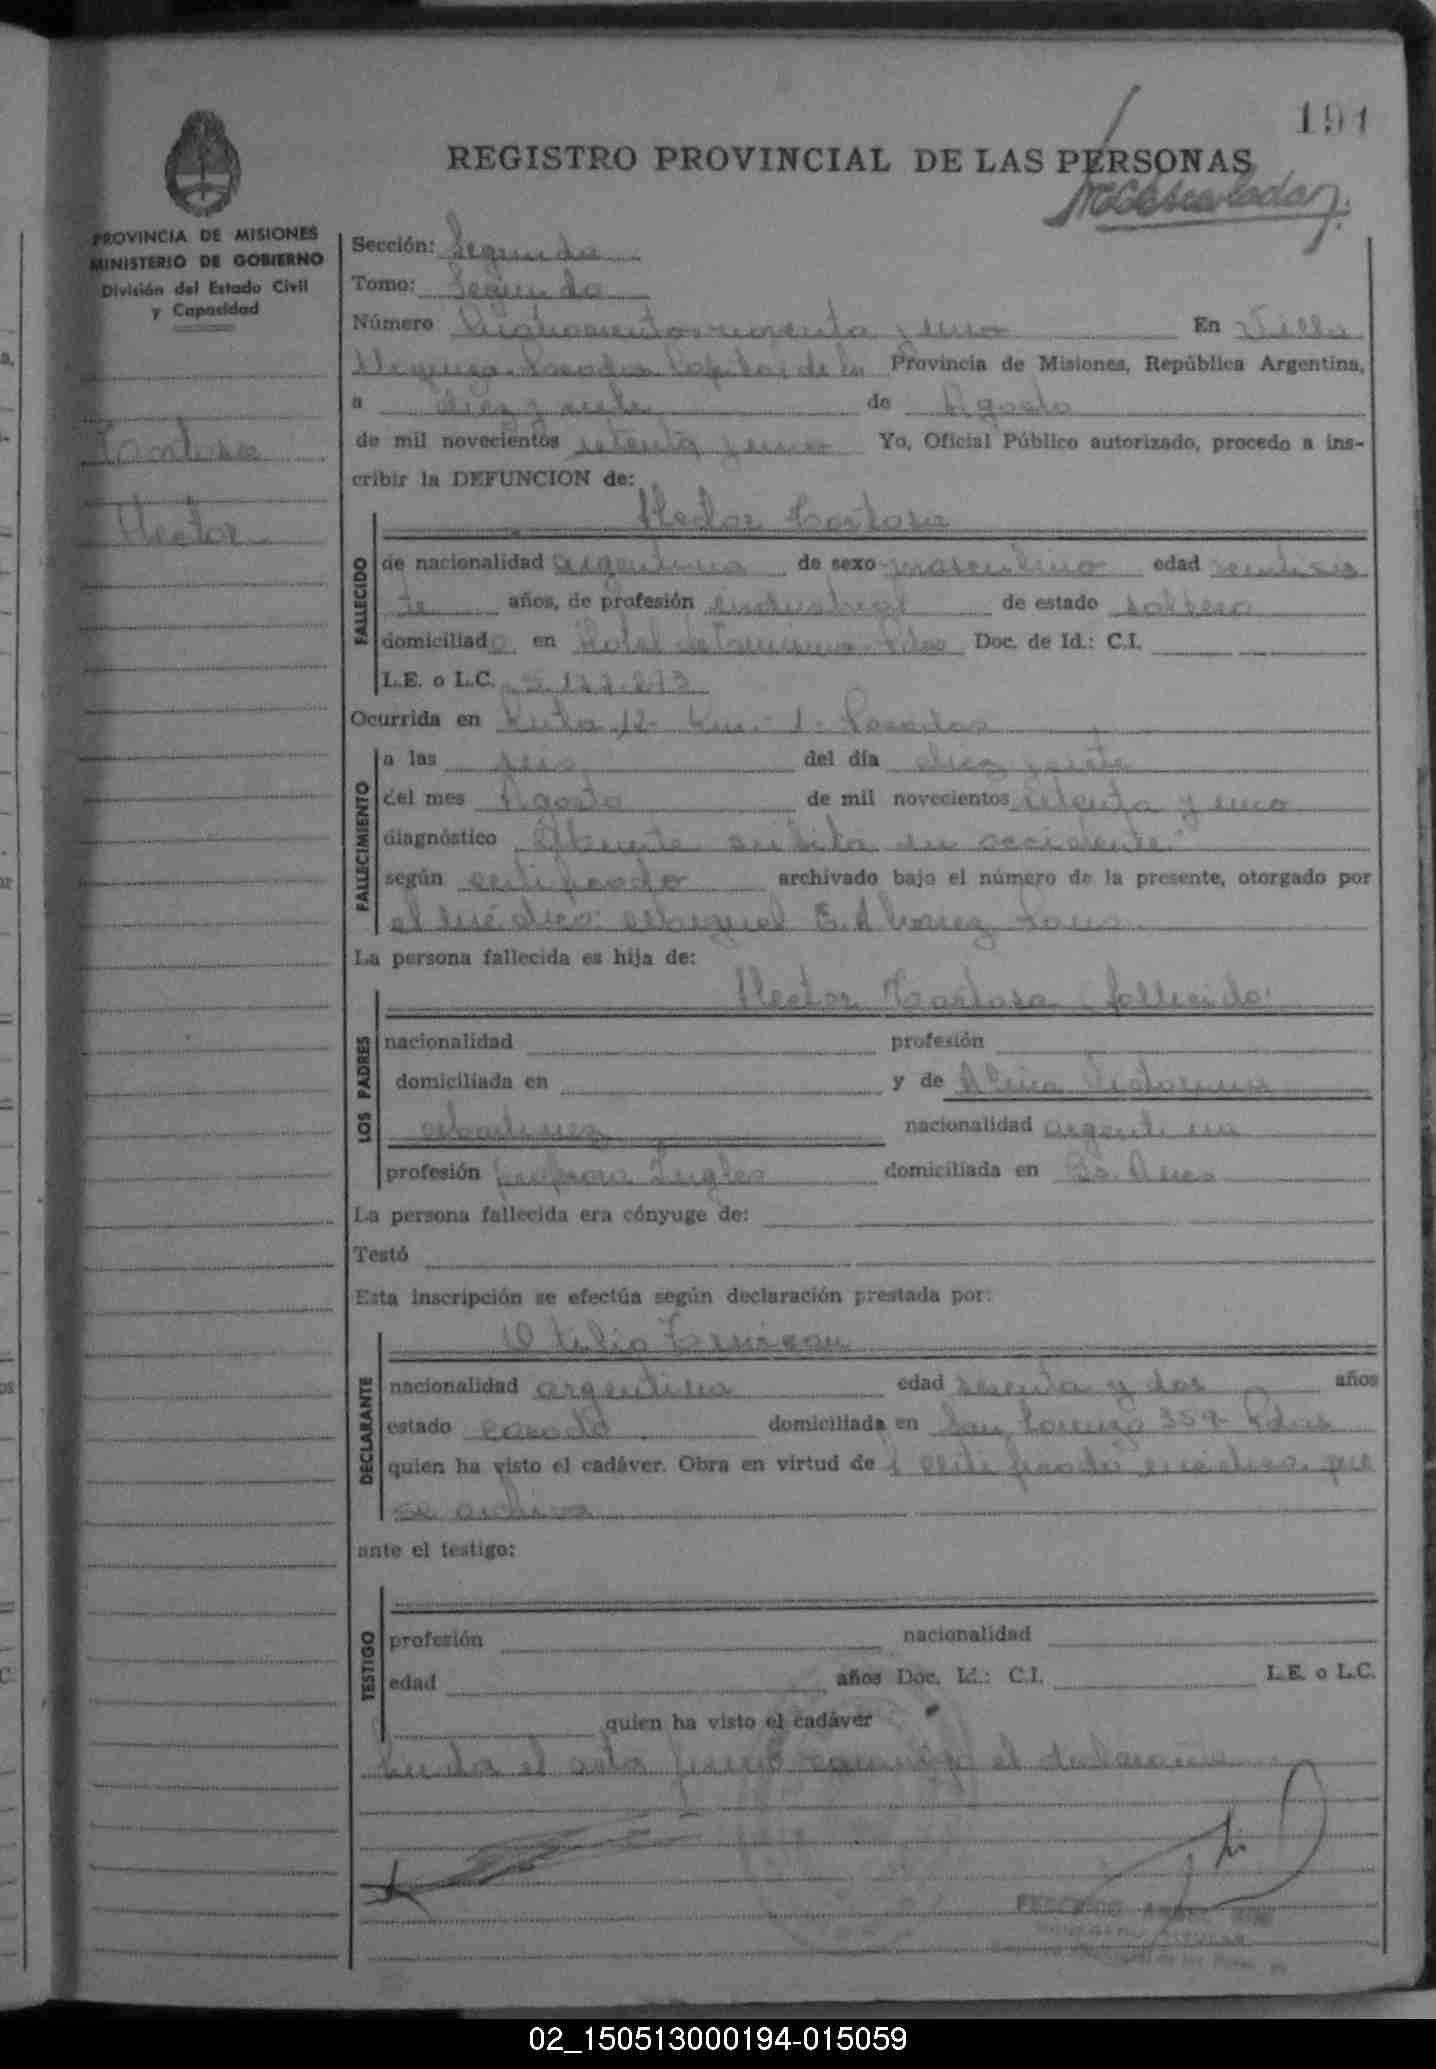 191
REGISTRO PROVINCIAL DE LAS PERSONAS
PROVINCIA DE MISIONES
MINISTERIO DE GOBIERNO
División del Estado Civil
y Capacidad
Tortosa
Hector
Sección: Segunda
Tomo: Segundo
Número y uno En Villa
Posadas Capital de la Provincia de Misiones, República Argentina,
a diez y siete de Agosto
de mil novecientos setenta y uno Yo, Oficial Público autorizado, procedo a ins-
cribir la DEFUNCION de:
Hector Tortosa
FALLECIDO
de nacionalidad argentina de sexo masculino edad
te años, de profesión industrial de estado soltero
domiciliado en Hotel de Turismo Pdas Doc. de Id.: C.I.
L.E. o L.C.
Ocurrida en Ruta 12 Km. 1 Posadas
FALLECIMIENTO
a las seis del día diez y siete
del mes Agosto de mil novecientos setenta y uno
diagnóstico Muerte subita en accidente
según certificado archivado bajo el número de la presente, otorgado por
el médico: Miguel E. Alvarez
La persona fallecida es hija de:
Hector Tortosa (fallecido)
LOS PADRES
nacionalidad profesión
domiciliada en y de Victorina
Martinez nacionalidad argentina
profesión profesora Ingles domiciliada en Bs. Aires
La persona fallecida era cónyuge de:
Testó
Esta inscripción se efectúa según declaración prestada por:
Otilio
DECLARANTE
nacionalidad argentina edad sesenta y dos años
estado casado domiciliada en San Lorenzo 359 Pdas
quien ha visto el cadáver. Obra en virtud del certificado médico que
se archiva
ante el testigo:
TESTIGO
profesión nacionalidad
edad años Doc. Id.: C.I. L.E. o L.C.
quien ha visto el cadáver
Leida el acta firma conmigo el declarante
02_150513000194-015059